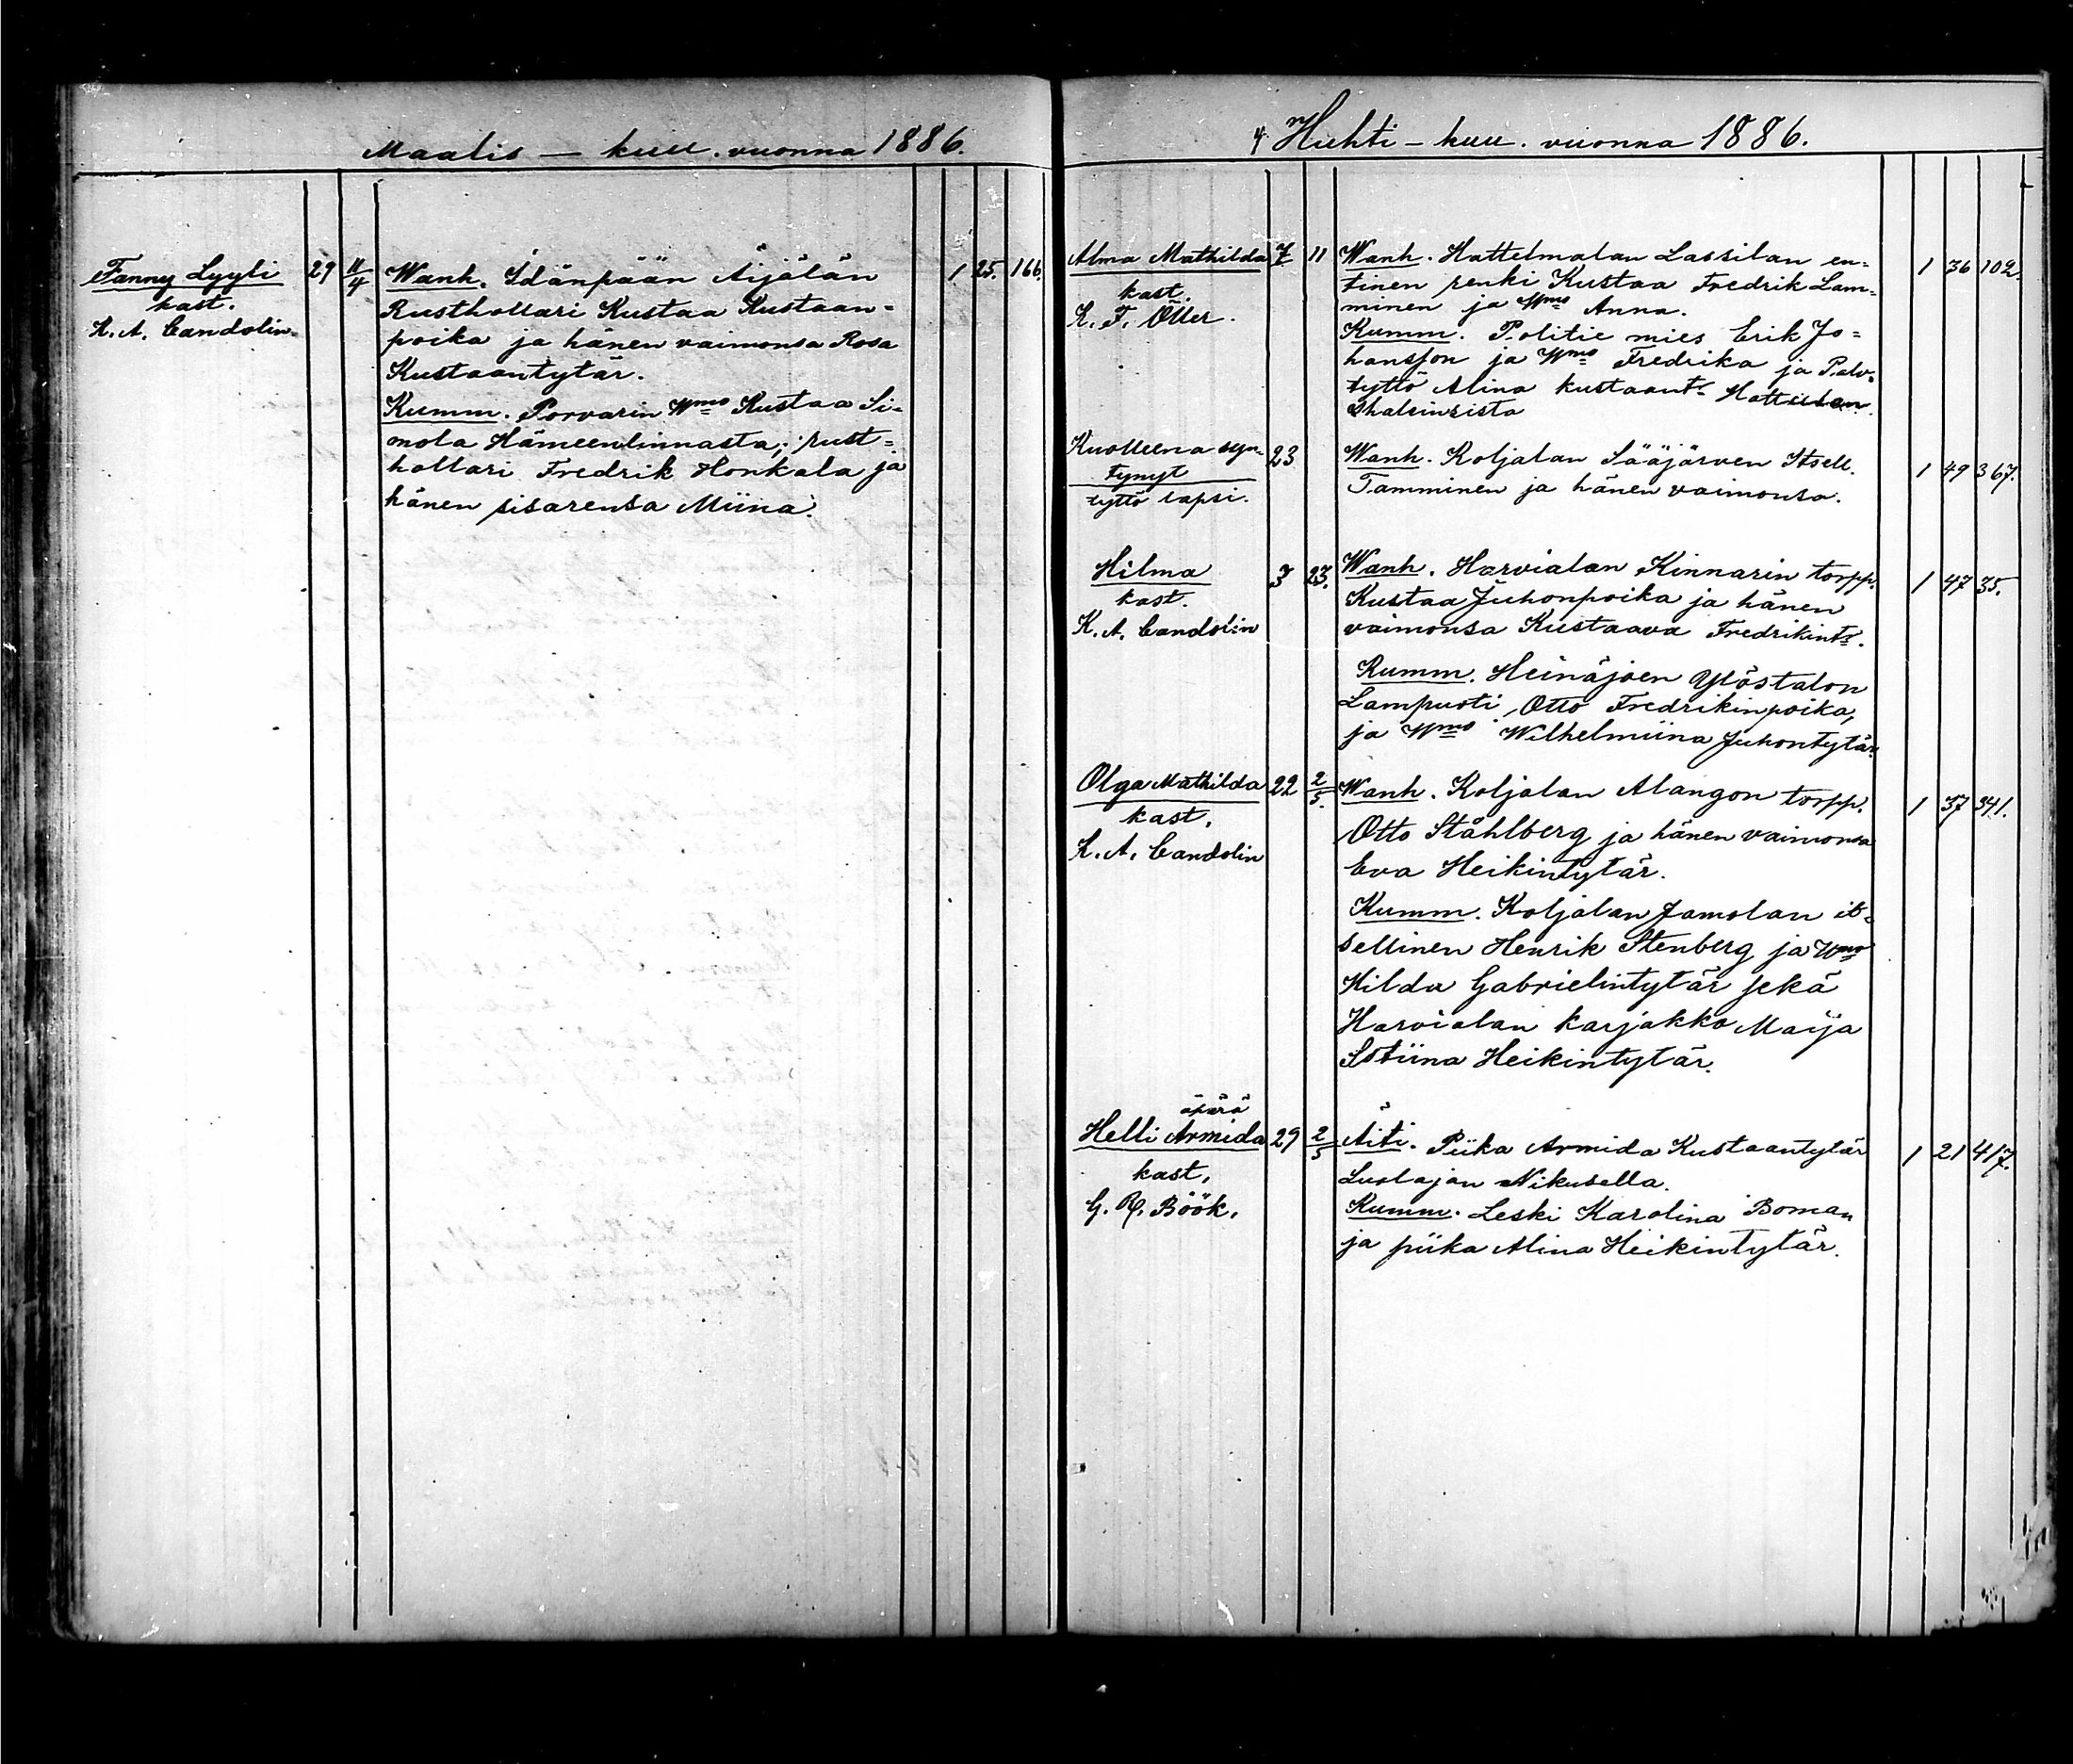 Maalis – kuu. vuonna 1886.
Fanny Lyyli 29 11/4 Wanh. Idänpään Äijälän 1 25. 166.
kast. Rusthollari Kustaa Kustaan=
K. A. Candolin. poika ja hänen vaimonsa Rosa
Kustaantytär.
Kumm. Porvarin Wmo Kustaa Si=
mola Hämeenlinnasta; rust=
hollari Fredrik Honkala ja
hänen sisarensa Miina.
4. Huhti – kuu. vuonna 1886.
Alma Mathilda 7 11 Wanh. Hattelmalan Lassilan en= 1 36 102.
kast. tinen renki Kustaa Fredrik Lam=
K. F. Öller. minen ja Wmo Anna.
Kumm. Politie mies Erik Jo=
hansson ja Wmo Fredrika ja Palv.
tyttö Alina Kustaant.
Kuolleena syn= 23 Wanh. Koljalan Sääjärven Itsell. 1 49 367.
tynyt Tamminen ja hänen vaimonsa.
tyttö lapsi.
Hilma 3 23. Wanh. Harvialan Kinnarin torpp. 1 47 35.
kast. Kustaa Juhonpoika ja hänen
K. A. Candolin vaimonsa Kustaava Fredrikint.
Kumm. Heinäjoen Ylöstalon
Lampuoti Otto Fredrikinpoika,
ja Wmo Wilhelmiina Juhontytär.
Olga Mathilda 22 2/5. Wanh. Koljalan Alangon torpp. 1 37 341.
kast. Otto Ståhlberg ja hänen vaimonsa
K. A. Candolin Eva Heikintytär.
Kumm. Koljalan Jamolan it=
sellinen Henrik Stenberg ja Wmo
Hilda Gabrielintytär sekä
Harvialan karjakko Maija
Stiina Heikintytär.
äpärä
Helli Armida 29 2/5 Äiti. Piika Armida Kustaantytär 1 21 417.
kast. Luolajan Nikusella.
G. R. Böök. Kumm. Leski Karolina Boman
ja piika Alina Heikintytär.